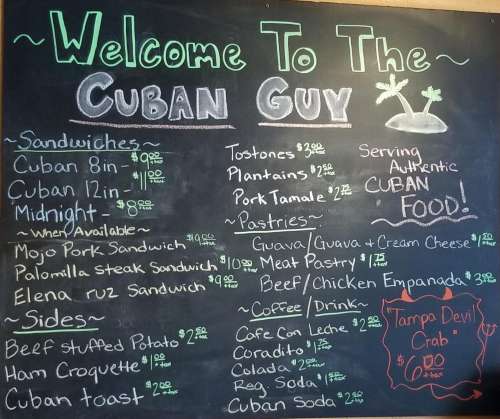 ~Welcome To The
CUBAN GUY
~Sandwiches~
Cuban 8in - $9.00 +tax
Cuban 12in - $11.00 +tax
Midnight - $8.00 +tax
~When Available~
Mojo Pork Sandwich $9.00 +tax
Palomilla steak Sandwich $10.00 +tax
Elena ruz Sandwich $9.00 +tax
~Sides~
Beef stuffed Potato $2.50 +tax
Ham Croquette $1.00 +tax
Cuban toast $2.00 +tax
Tostones $3.00 +tax
Plantains $2.50 +tax
Pork Tamale $2.75 +tax
~Pastries~
Guava/Guava + Cream Cheese $1.50 +tax
Meat Pastry $1.75 +tax
Beef/Chicken Empanada $3.00 +tax
~Coffee/Drink~
Cafe Con Leche $2.50 +tax
Coradito $1.75 +tax
Colada $2.00 +tax
Reg. Soda $1.50 +tax
Cuban Soda $2.50 +tax
Serving
Authentic
CUBAN
FOOD!
"Tampa Devil
Crab"
$6.00 +tax